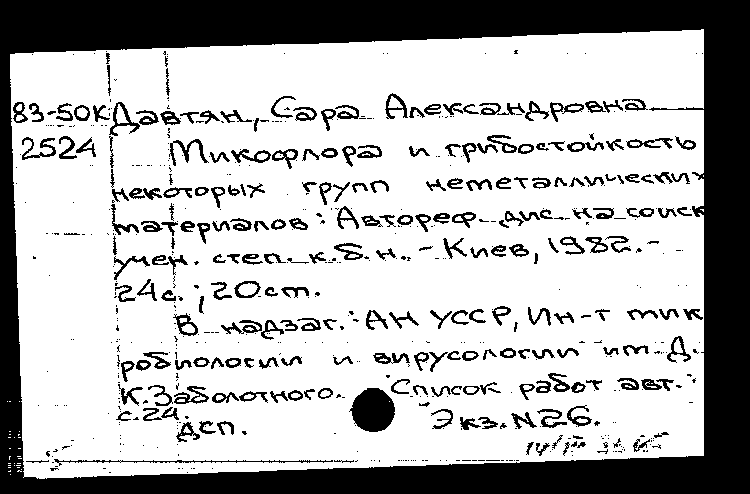 83-50К Давтян, Сара Александровна
2524 Микофлора и грибостойкость
некоторых групп неметаллических
материалов : Автореф. дис. на соиск
учен. степ. к.б.н. - Киев, 1982. -
24с. ; 20 ст.
В надзаг.: АН УССР, Ин-т мик
робиологии и вирусологии им. Д.
К. Заболотного. Список работ авт.:
с. 24.
ДСП. Экз. N26.